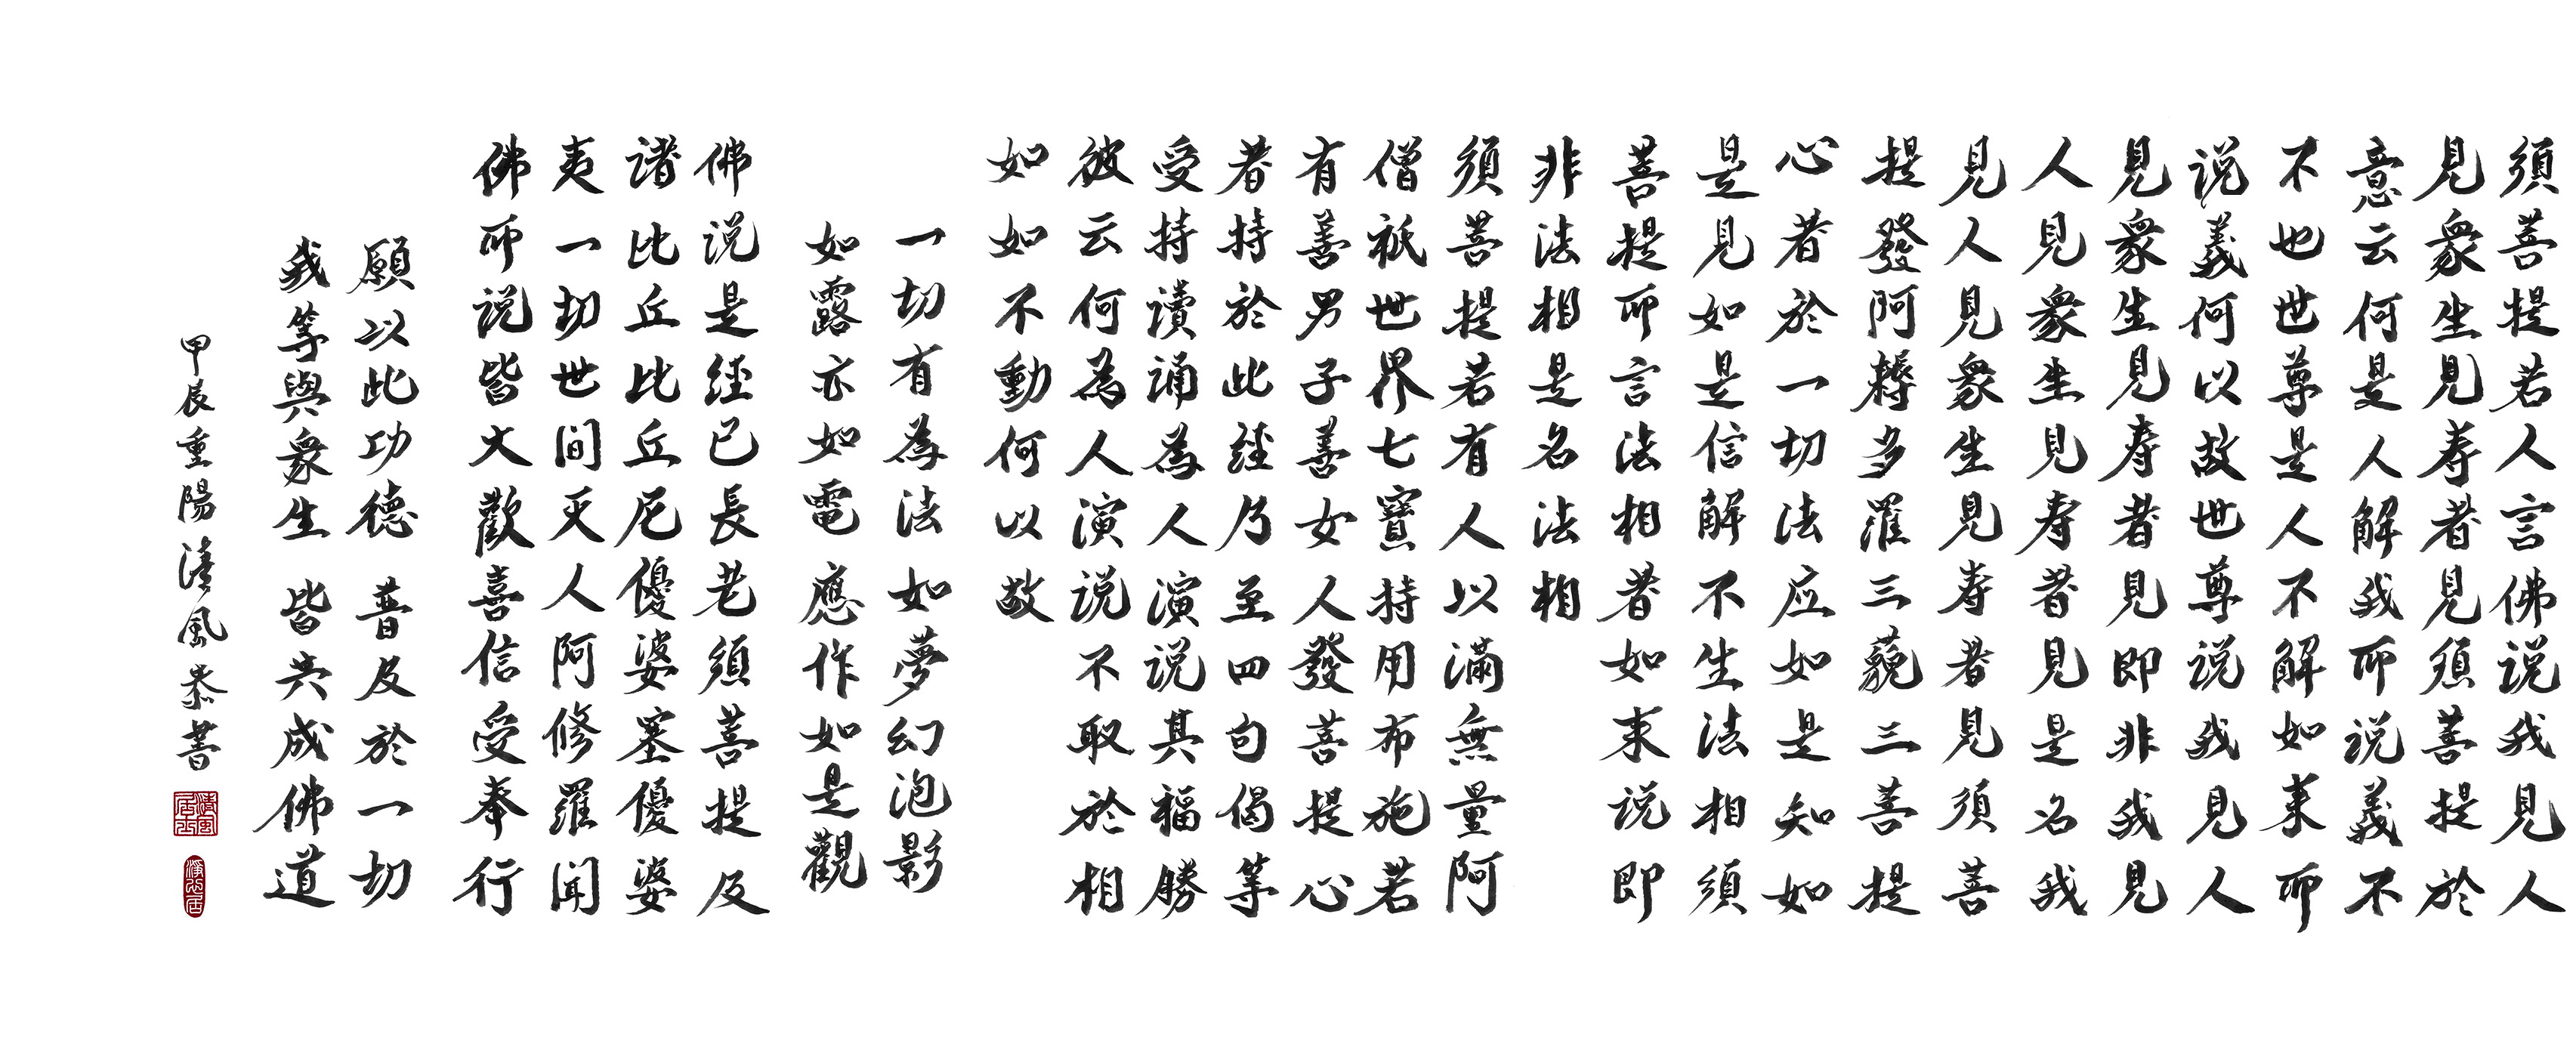 須菩提若人言佛说我見人
見衆生見寿者見須菩提於
意云何是人解我所说義不
不也世尊是人不解如来所
说義何以故世尊说我見人
見衆生見寿者見即非我見
人見衆生見寿者見是名我
見人見衆生見寿者見須菩
提發阿耨多羅三藐三菩提
心者於一切法应如是知如
是見如是信解不生法相須
菩提所言法相者如来说即
非法相是名法相
須菩提若有人以滿無量阿
僧祇世界七寶持用布施若
有善男子善女人發菩提心
者持於此経乃至四句偈等
受持讀诵為人演说其福勝
彼云何為人演说不取於相
如如不動何以故
一切有為法如夢幻泡影
如露亦如電應作如是觀
佛说是経已長老須菩提及
諸比丘比丘尼優婆塞優婆
夷一切世间天人阿修羅闻
佛所说皆大歡喜信受奉行
願以此功德 普及於一切
我等與衆生 皆共成佛道
甲辰重陽清風恭書
清風居士